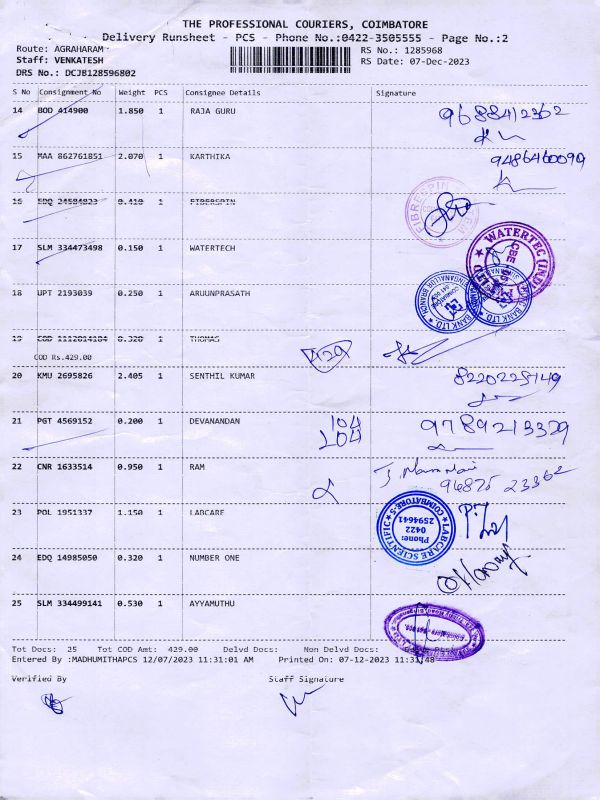 THE PROFESSIONAL COURIERS, COIMBATORE
Delivery Runsheet - PCS - Phone No.:0422-3505555 - Page No.:2
Route: AGRAHARAM RS No.: 1285968
Staff: VENKATESH RS Date: 07-Dec-2023
DRS No.: DCJB128596802
S No Consignment No Weight PCS Consignee Details Signature
14 BOD 414900 1.850 1 RAJA GURU 9688412362
15 MAA 862761851 2.070 1 KARTHIKA 9486460090
16 EDQ 24584823 0.410 1 FIBERSPIN
17 SLM 334473498 0.150 1 WATERTECH
WATERTEC (IND)
18 UPT 2193039 0.250 1 ARUUNPRASATH
BANK LTD.
19 COD 1112014184 0.320 1 THOMAS
COD Rs.429.00 429
20 KMU 2695826 2.405 1 SENTHIL KUMAR 8220225149
21 PGT 4569152 0.200 1 DEVANANDAN 104 9789213329
204
22 CNR 1633514 0.950 1 RAM
23 POL 1951337 1.150 1 LABCARE
LABCARE SCIENTIFIC COIMBATORE-5
Phone: 0422 2594641
24 EDQ 14985050 0.320 1 NUMBER ONE
25 SLM 334499141 0.530 1 AYYAMUTHU
Tot Docs: 25 Tot COD Amt: 429.00 Delvd Docs: Non Delvd Docs:
Entered By :MADHUMITHAPCS 12/07/2023 11:31:01 AM Printed On: 07-12-2023 11:31:48
Verified By Staff Signature